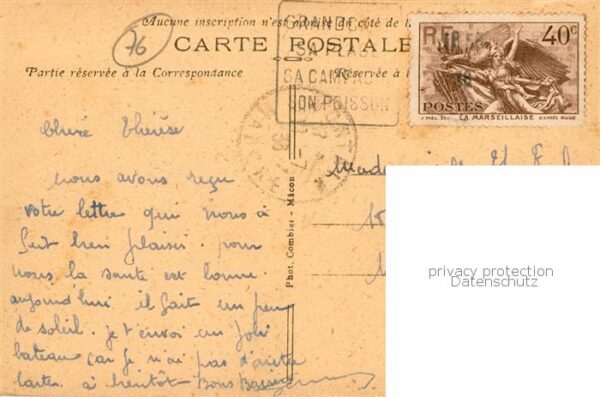 Aucune inscription n'est admise du côté de l
76
CARTE POSTALE
Partie réservée à la Correspondance
Réservée à l
GRANDC
SA PLAGE
SA CAMPAG
SON POISSON
RF
40c
POSTES
LA MARSEILLAISE
D'APRÈS RUDE
Chère Thérèse
nous avons reçu
votre lettre qui nous a
fait bien plaisir. pour
nous la santé est bonne.
aujourd'hui il fait un peu
de soleil. je t'envoi un joli
bateau car je n'ai pas d'autre
cartes. à bientôt Bons Baisers
Phot. Combier - Mâcon
privacy protection
Datenschutz